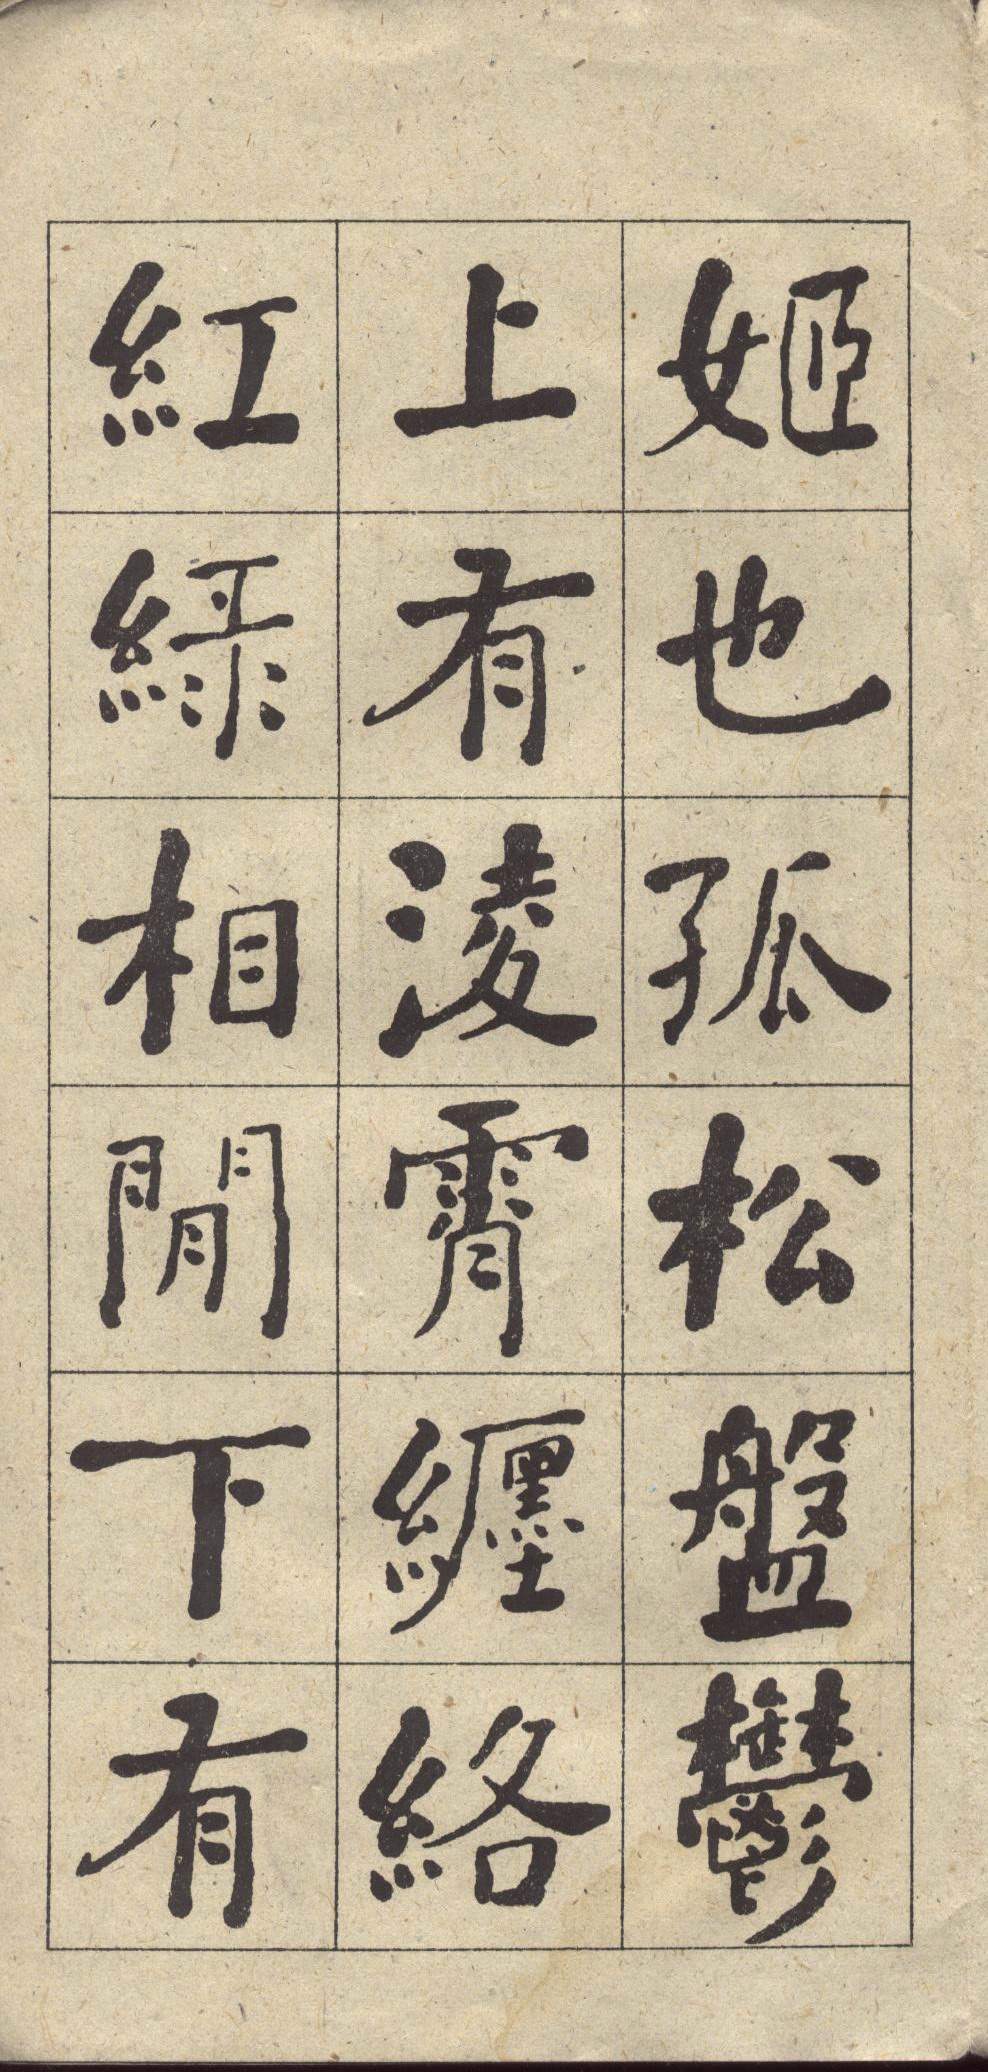 姬也孤松盤鬱
上有淩霄纏絡
紅緑相間下有